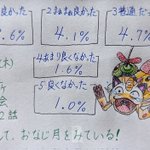 も良かった 2まあ良かった 3普通だっ
.6% 4.1% 4.7%
(木) 4あまり良くなかった
1.6%
5良くなかった
会 1.0%
て、おなじ月をみている!